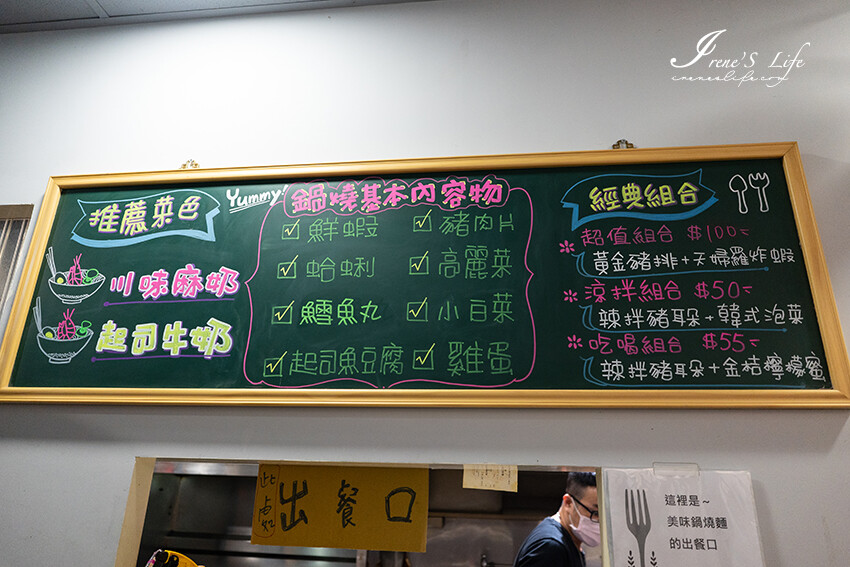 Irene'S Life
ireneslife.com
推薦菜色
川味麻奶
起司牛奶
Yummy!
鍋燒基本內容物
鮮蝦
豬肉片
蛤蜊
高麗菜
鱈魚丸
小白菜
起司魚豆腐
雞蛋
經典組合
超值組合 $100-
黃金豬排+天婦羅炸蝦
涼拌組合 $50-
辣拌豬耳朵+韓式泡菜
吃喝組合 $55-
辣拌豬耳朵+金桔檸檬蜜
出餐口
這裡是~
美味鍋燒麵
的出餐口